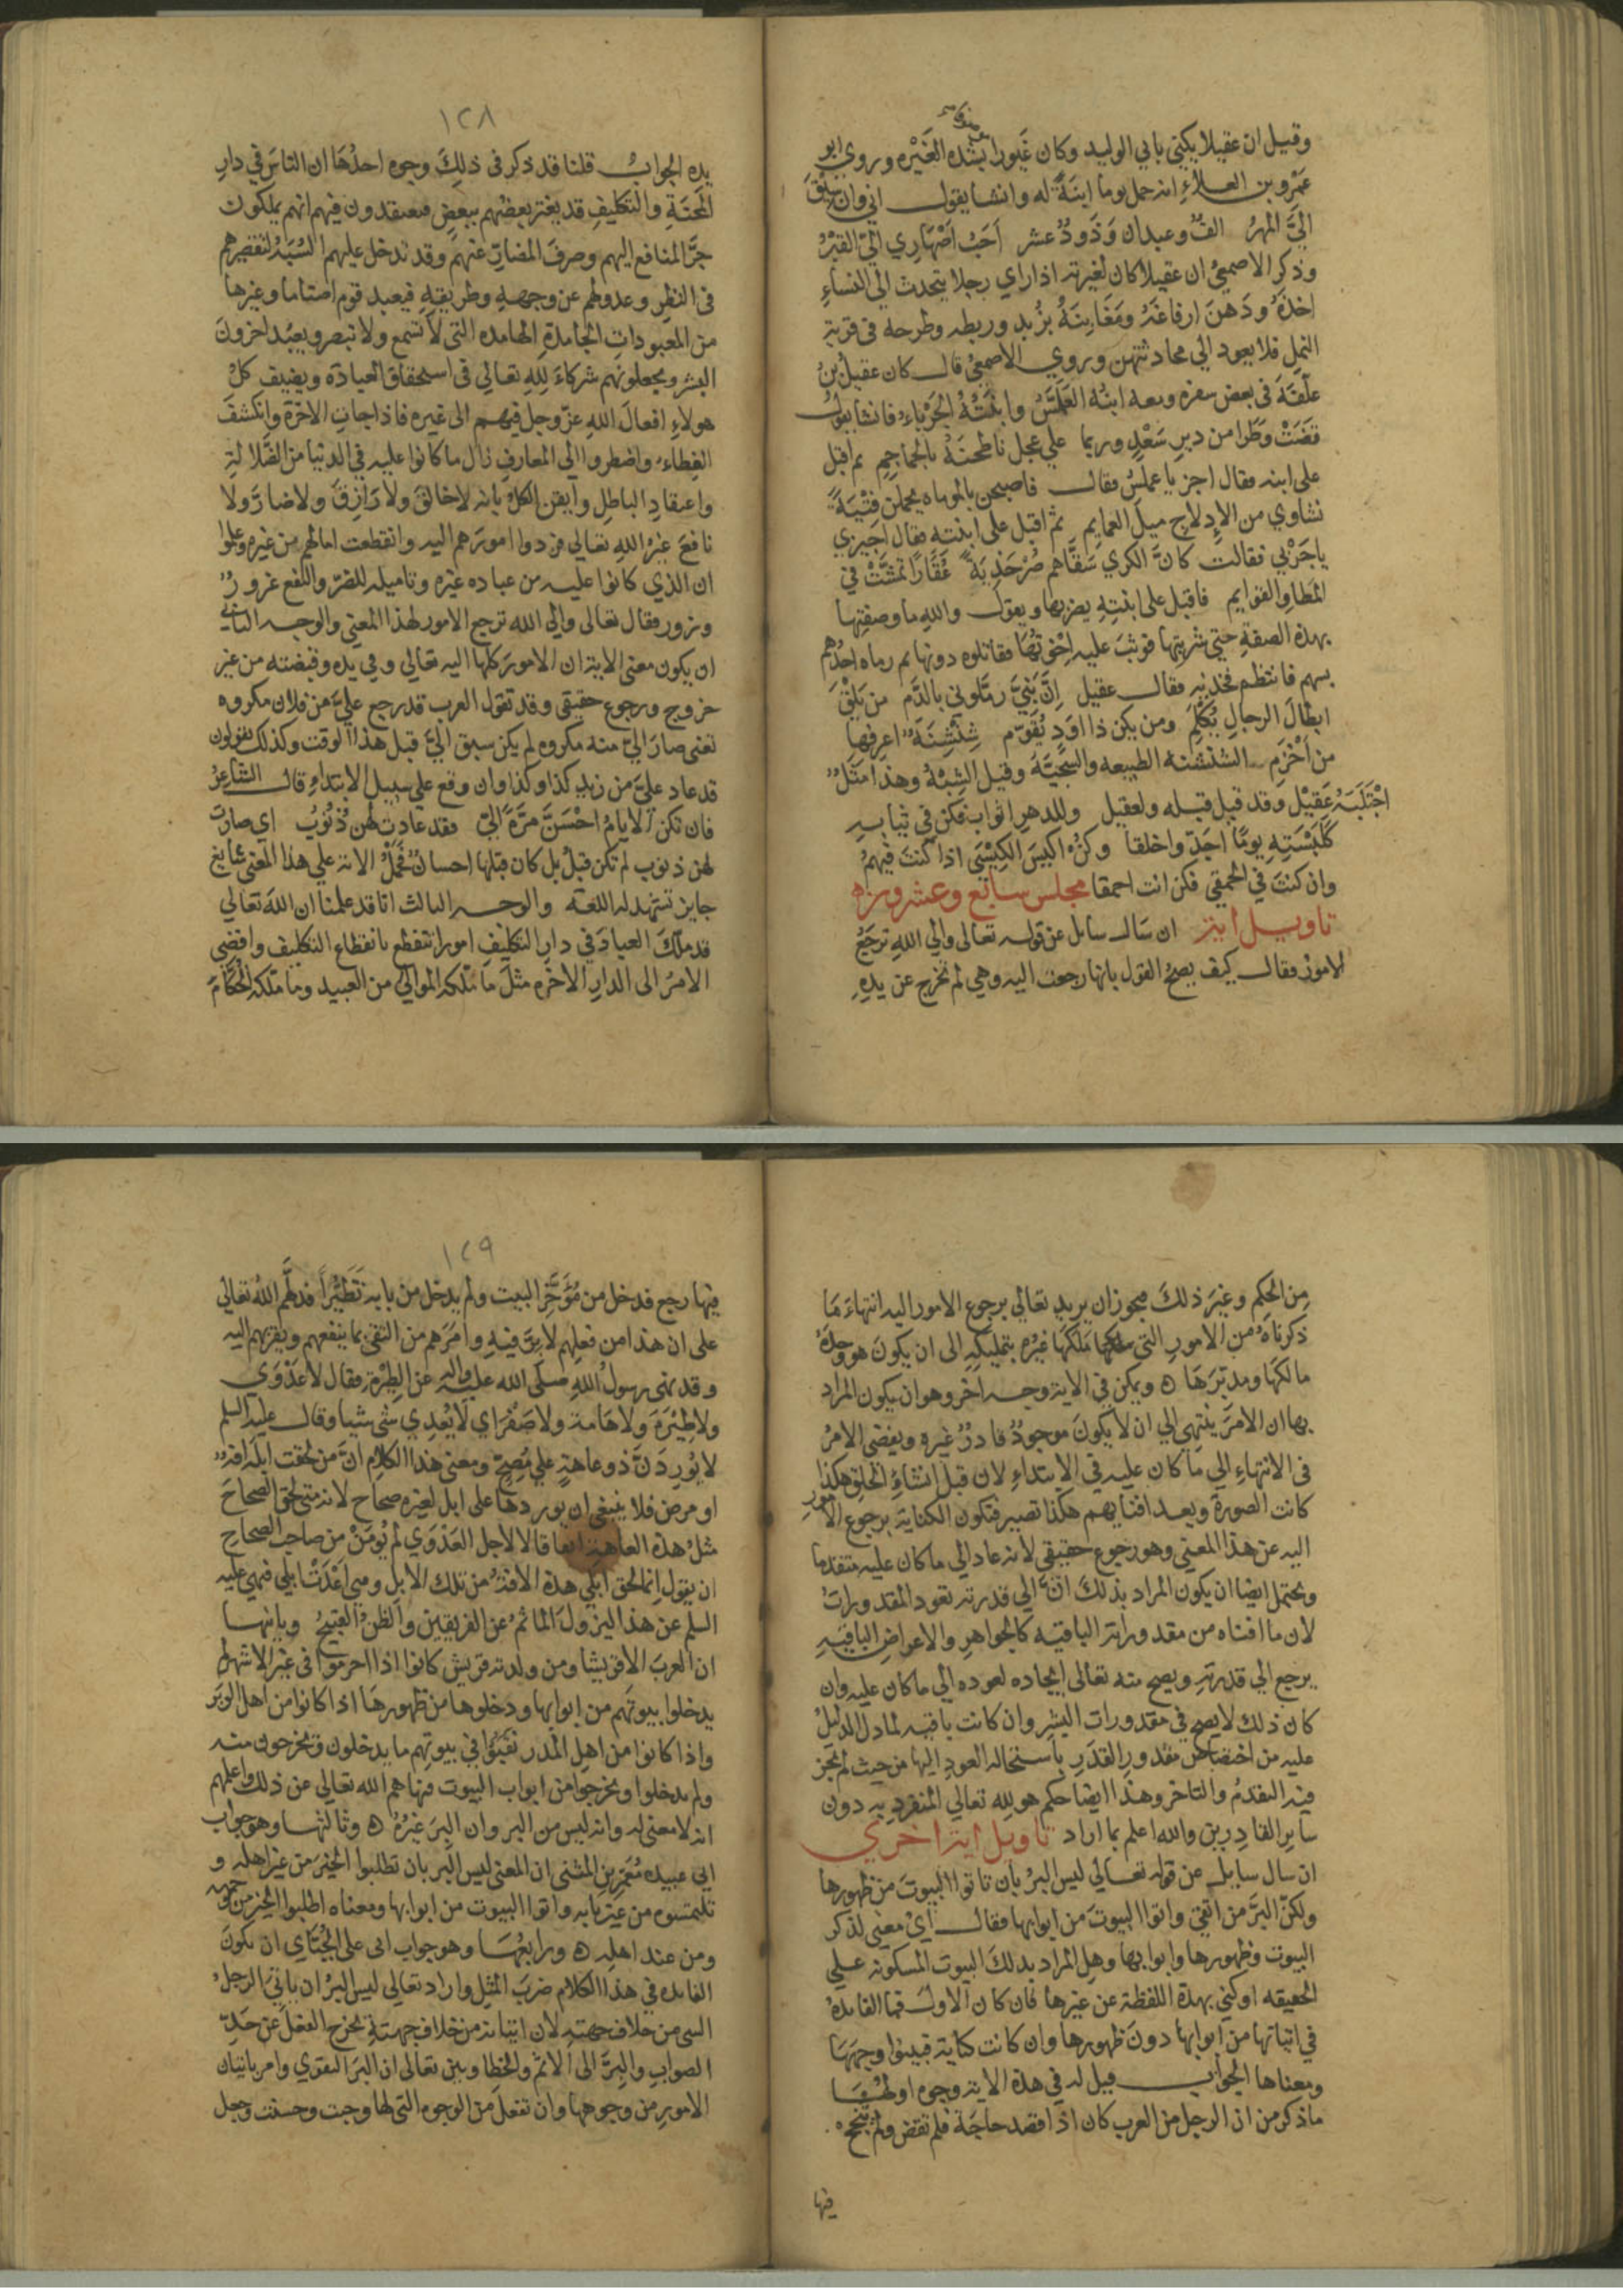 وقيل ان عقيلا يكنى بابي الوليد وكان غيورا بشده الغَيْره وروي ابو
عَمْرو بن العلاءِ انه حمل يوما ابنةً له وانشا يقول اني وان سِيْقَ
اليَّ المهرُ الفٌ وعبدان وَذَودٌ عشر اَحَبُ اَصْهَارِي اليّ القبْرُ
وذكر الاصمعيُ ان عقيلا كان لغيرته اذا راي رجلا يتحدث الي النساءِ
اخذهُ ودَهنَ ارفاغَهُ ومَغَابِنَهُ بزُبدٍ وربطه وطرحه في قرية
النمل فلا يعود الي محادثتهن وروي الاصمعيُ قال كان عقيلُ بنُ
علّفَةَ في بعض سفره ومعه ابنُه العَمَلَّسُ وابْنَتُهُ الجَرْباء فانشا يقول
قضَتْ وَطَرا من ديرِ سَعْدٍ وربما علي عجل ناطحنَهُ بالجماجمِ ثم اقبل
على ابنه فقال اجز يا عملسُ فقال فاصبحن بالموماه يحملن فتْيَةً
نشاوي من الاِدلاج ميلَ العمايم ثم اقبل على ابنته فقال اَجيزي
يا جَرْبي فقالت كانَّ الكري سَقَّاهم صُرْخَديَةً عُقَارًا تمشَّتْ في
المَطا والقوايم فاقبل على ابنتِهِ يضربها ويقول واللهِ ما وصفتِها
بهذه الصفةِ حتي شربتِها فوثبَ عليه اِخْوَتُها فقاتلوه دونها ثم رماه احدُهم
بسهم فانتظم فخذيه فقال عقيل اِنَّ بَنيَّ رمّلوني بالدَّم من يَلْقَ
ابطالَ الرجالِ يُكْلَمِ ومن يكن ذا اَوَدٍ يُقَوّم شِنْشِنَةٌ اعرفها
من اَخْزَمِ الشنشنه الطبيعه والسَّجيَّةُ وقيل الشِبْهُ وهذا مَثَلٌ
اجْتَلَبَهُ عَقِيْل وقد قيل قبله ولعقيل وللدهرِ اثواب فكن في ثيابهِ
كَلِبْسَتِهِ يومًا اجَدّ واخلقا وكنْ اكيسَ الكَيْسَى اذا كنتَ فيهمُ
وان كنتَ في الحمقي فكن انت احمقا مجلس سابع وعشرون
تاويل اية ان سَال سائل عن قوله تعالى والي اللهِ ترجَعُ
الامورُ فقال كيف يصحُ القول بانها رجعت اليه وهي لم تخرج عن يدِهِ
١٢٨
يده الجوابُ قلنا قد ذكر في ذلكَ وجوه احدُهَا ان الناسَ في دارِ
المحنَةِ والتكليفِ قد يغتر بعضُهم ببعضٍ فيعتقدون فيهم انهم يملكون
جرَّ المنافعِ اليهم وصرفَ المضارّ عنهم وقد تدخل عليهم الشُبَهُ لتقصيرهم
في النظرِ وعدولهم عن وجهه وطريقهِ فيعبد قوم اصناما وغيرها
من المعبوداتِ الجامدةِ الهامده التي لا تسمع ولا تبصر ويعبُد اخرونَ
البشر ويجعلونهم شركاءَ لِلهِ تعالى في استحقاق العبادَه ويضيف كلُ
هولاءِ افعالَ اللهِ عزّ وجل فيهم الى غيره فاذا جاتِ الاخرَة وانكشفَ
الغطاء واضطروا الى المعارفِ زال ما كانوا عليه في الدنيا من الضّلالةِ
واعتقادِ الباطلِ وايقن الكلُ بانه لا خالقَ ولا رَازِقَ ولا ضارَ ولا
نافعَ غيرُ اللهِ تعالى فردوا امورَهم اليه وانقطعت امالهُم من غيره وعلموا
ان الذي كانوا عليه من عباده غيره وتاميله للضر والنفع غرورٌ
وزور فقال تعالى والي الله ترجع الامور لهذا المعني والوجه الثاني
ان يكون معنى الاية ان الامورَ كلها اليه تعالي وفي يده وقبضته من غير
خروج ورجوع حقيقي وقد تقول العرب قد رجع عليَّ من فلان مكروه
تعني صارَ اليّ منه مكروه لم يكن سبق اليَّ قبل هذا الوقت وكذلك يقولون
قد عاد عليَّ من زيد كذا وكذا وان وقع علي سبيل الابتداءِ قال الشاعرُ
فان تكن الايامُ احْسَنَّ مرّةً اليّ فقد عادت لهن ذُنُوبُ اي صارت
لهن ذنوب لم تكن قبلُ بل كان قبلها احسانٌ فحَمْلُ الاية علي هذا المعني شايع
جايز تشهد له اللغة والوجه الثالث انا قد علمنا ان اللهَ تعالي
قد ملّكَ العبادَ في دارِ التكليفِ امورا تنقطع بانقطاع التكليف وافضي
الامرُ الى الدارِ الاخره مثلَ ما مَلّكه الموالي من العبيد وما ملّكه الحُكَّامَ
مِن الحكمِ وغيرَ ذلكَ فيجوز ان يريد تعالي برجوع الامور اليه انتهاءَ مَا
ذكرناهُ من الامورِ التي ملكها غيرُه بتمليكهِ الى ان يكونَ هو وحدَهُ
مالكَهَا ومدبّرَهَا ه ويمكن في الاية وجه اخر وهو ان يكون المراد
بها ان الامرَ ينتهي الي ان لا يكونَ موجودٌ قادرٌ غيره ويفضي الامرُ
في الانتهاءِ الي ما كان عليه في الابتداءِ لان قبلَ انشاءِ الخلقِ هكذا
كانت الصورَة وبعد افنايهم هكذا تصير فتكون الكناية برجوع الامور
اليه عن هذا المعني وهو رجوع حقيقي لانه عاد الي ما كان عليه متقدما
ويحتمل ايضا ان يكون المراد بذلكَ انَّ الي قدرته تعود المقدوراتُ
لان ما افناه من مقدوراته الباقيه كالجواهرِ والاعراضِ الباقيهِ
يرجع الي قدرتهِ ويصح منه تعالى ايجاده لعوده الي ما كان عليه وان
كان ذلك لا يصح في مقدورات البشر وان كانت باقيه لما دل الدليلُ
عليه من اختصاص مقدورِ القُدَرِ باستحاله العودِ اليها من حيث لم يجز
فيه التقدمُ والتاخر وهذا ايضا حكم هو لله تعالي المنفردِ به دون
سايرِ القادِرِين والله اعلم بما اراد تاويل اية اخري
ان سال سايل عن قوله تعالي ليس البرُ بان تاتوا البيوتَ من ظهورها
ولكنّ البرَّ من اتقي واتوا البيوتَ من ابوابها فقال ايُ معني لذكر
البيوت وظهورها وابوابها وهل المراد بذلكَ البيوت المسكونه علي
الحقيقه او كني بهذة اللفظة عن غيرها فان كان الاول فما الفايدةُ
في اتيانها من ابوابها دونَ ظهورها وان كانت كناية فبينوا وجههَا
ومعناها الجواب قيل له في هذة الاية وجوه اولُهَا
ما ذكر من ان الرجل من العرب كان اذا قصد حاجَة فلم تقض ولم تنجح
فيها
١٢٩
فيها رجع فدخل من مُؤَخَّرِ البيت ولم يدخل من بابه تَطَيُّراً فدلَّهم اللهُ تعالي
على ان هذا من فعلِهم لا برَّ فيهِ وامَرَهم من التقي بما ينفعهم ويقربهم اليه
وقد نهى رسولُ اللهِ صلّى الله عليه واله عن الطِيَرَة وقال لا عَدْوَي
ولا طِيَرَةَ ولا هَامة ولا صَفَرَ اي لا يُعْدِي شيٌ شيا وقال عليه السلم
لا يُورِدَنَّ ذو عاهةٍ علي مُصِحٍّ ومعني هذا الكلامِ انَّ من لحقت ابلَه افةٌ
او مرض فلا ينبغي ان يوردها على ابل لغيره صحاح لانه متى لحق الصحاحَ
مثلُ هذة العاهة اتفاقا لا لاجل العَدْوَي لم يُومَنْ من صاحب الصحاحِ
ان يقول اِنما لحق ابلي هذة الافةُ من تلك الابل وهي اعْدَتْ ابلي فنهى عليه
السلم عن هذا ليزولَ الماثمُ عن الفريقين والظنُ القبيحُ وثانيها
ان العربَ الا قريشا ومن ولدته قريش كانوا اذا احرموا في غير الاشهرِ
يدخلوا بيوتَهم من ابوابها ودخلوها من ظهورهَا اذا كانوا من اهل الوَبَر
واذا كانوا من اهلِ المَدَر نقَبُوا في بيوتِهم ما يدخلون ويخرجون منه
ولم يدخلوا ويخرجوا من ابواب البيوت فنهاهم الله تعالي عن ذلك واعلمهم
انه لا معنى له وانه ليس من البر وان البِرَ غيرُهُ ه وثالثها وهو جواب
ابي عبيده مُعْمَر بن المثنى ان المعني ليس البر بان تطلبوا الخيرَ من غير اهله و
تلتمسوه من غير بابه واتوا البيوت من ابوابها ومعناه اطلبوا الخير من وجهه
ومن عند اهلِهِ ه ورابعُهَا وهو جواب ابي على الجُبَّاي ان يكونَ
الفايده في هذا الكلام ضربَ المثلِ واراد تعالي ليس البرُ ان ياتيَ الرجلُ
الشي من خلافِ جهتهِ لان اتيانه من خلافِ جهتهِ يخرج الفعلَ عن حَدِّ
الصوابِ والبِرِّ الى الاثم والخطا وبين تعالى ان البرَ التقوي وامر باتيان
الامورِ من وجوهها وان تفعلَ من الوجوه التي لها وجبت وحسنت وجعل